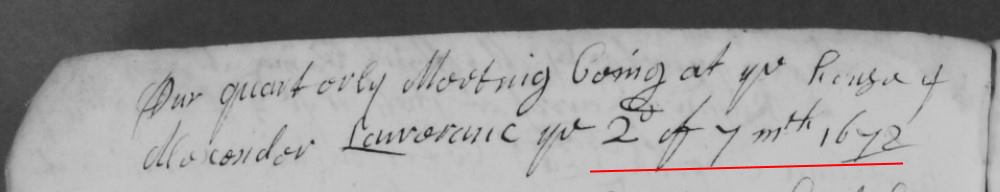 Our quarterly Meeting being at ye house of
Alexander Lawrance ye 2d of 7 mth 1672